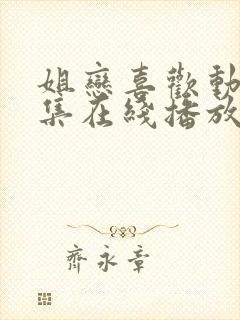 姐戀喜歡動
集在綫播放
齊永章